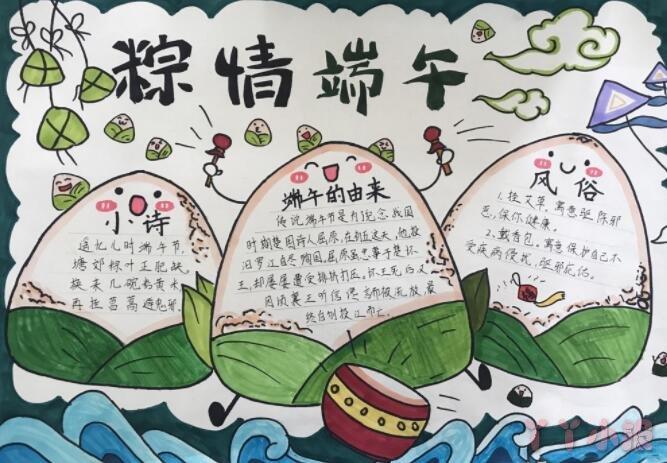 粽情端午
小诗
追忆儿时端午节,
塘郊粽叶正肥缺
换来几碗雄黄水
再挂菖蒿避鬼邪.
端午的由来
传说端午节是为纪念战国
时期楚国诗人屈原,在五月五这天,他投
汨罗江自尽殉国,屈原虽忠事于楚怀
王,却屡屡遭受排挤打压,怀王死后又
因顷襄王听信谗言而被流放,最
终自刎投江而亡.
风俗
1. 挂艾草,寓意驱除邪
恶,保你健康.
2. 戴香包,寓意保护自己不
受疾病侵扰,驱邪花伤。
丫丫小报